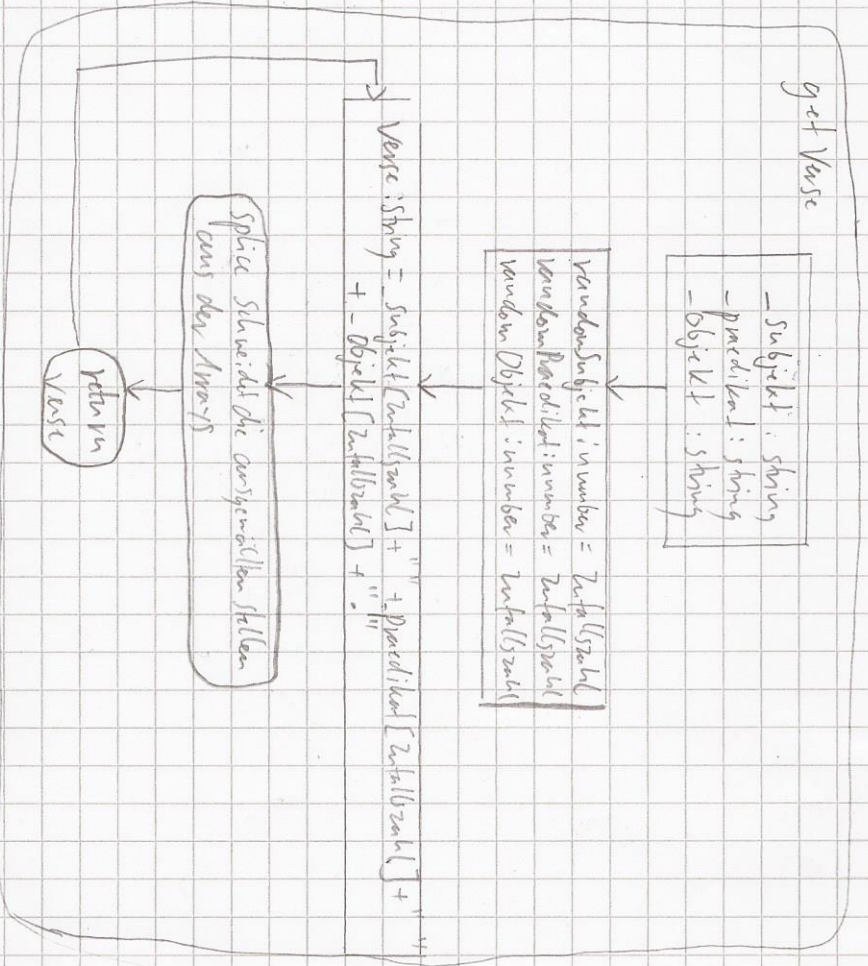 get Verse
_Subjekt : string
_praedikat : string
_Objekt : string
randomSubjekt : number = Zufallszahl
randomPraedikat : number = Zufallszahl
random Objekt : number = Zufallszahl
Verse : string = _Subjekt[Zufallszahl] + " " + _Praedikat[Zufallszahl] + " "
+ _Objekt[Zufallszahl] + "."
splice Schneidet die ausgewällten stellen
aus der Arrays
return
Verse